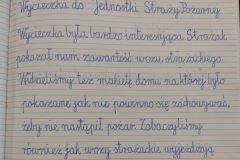 Wycieczka do Jednostki Straży Pożarnej
Wycieczka była bardzo interesująca. Strażak
pokazał nam zawartość wozu strażackiego.
Widzieliśmy też makietę domu na której było
pokazane jak nie powinno się zachowywać,
żeby nie nastąpił pożar. Zobaczyliśmy
również jak wozy strażackie wyjeżdżają